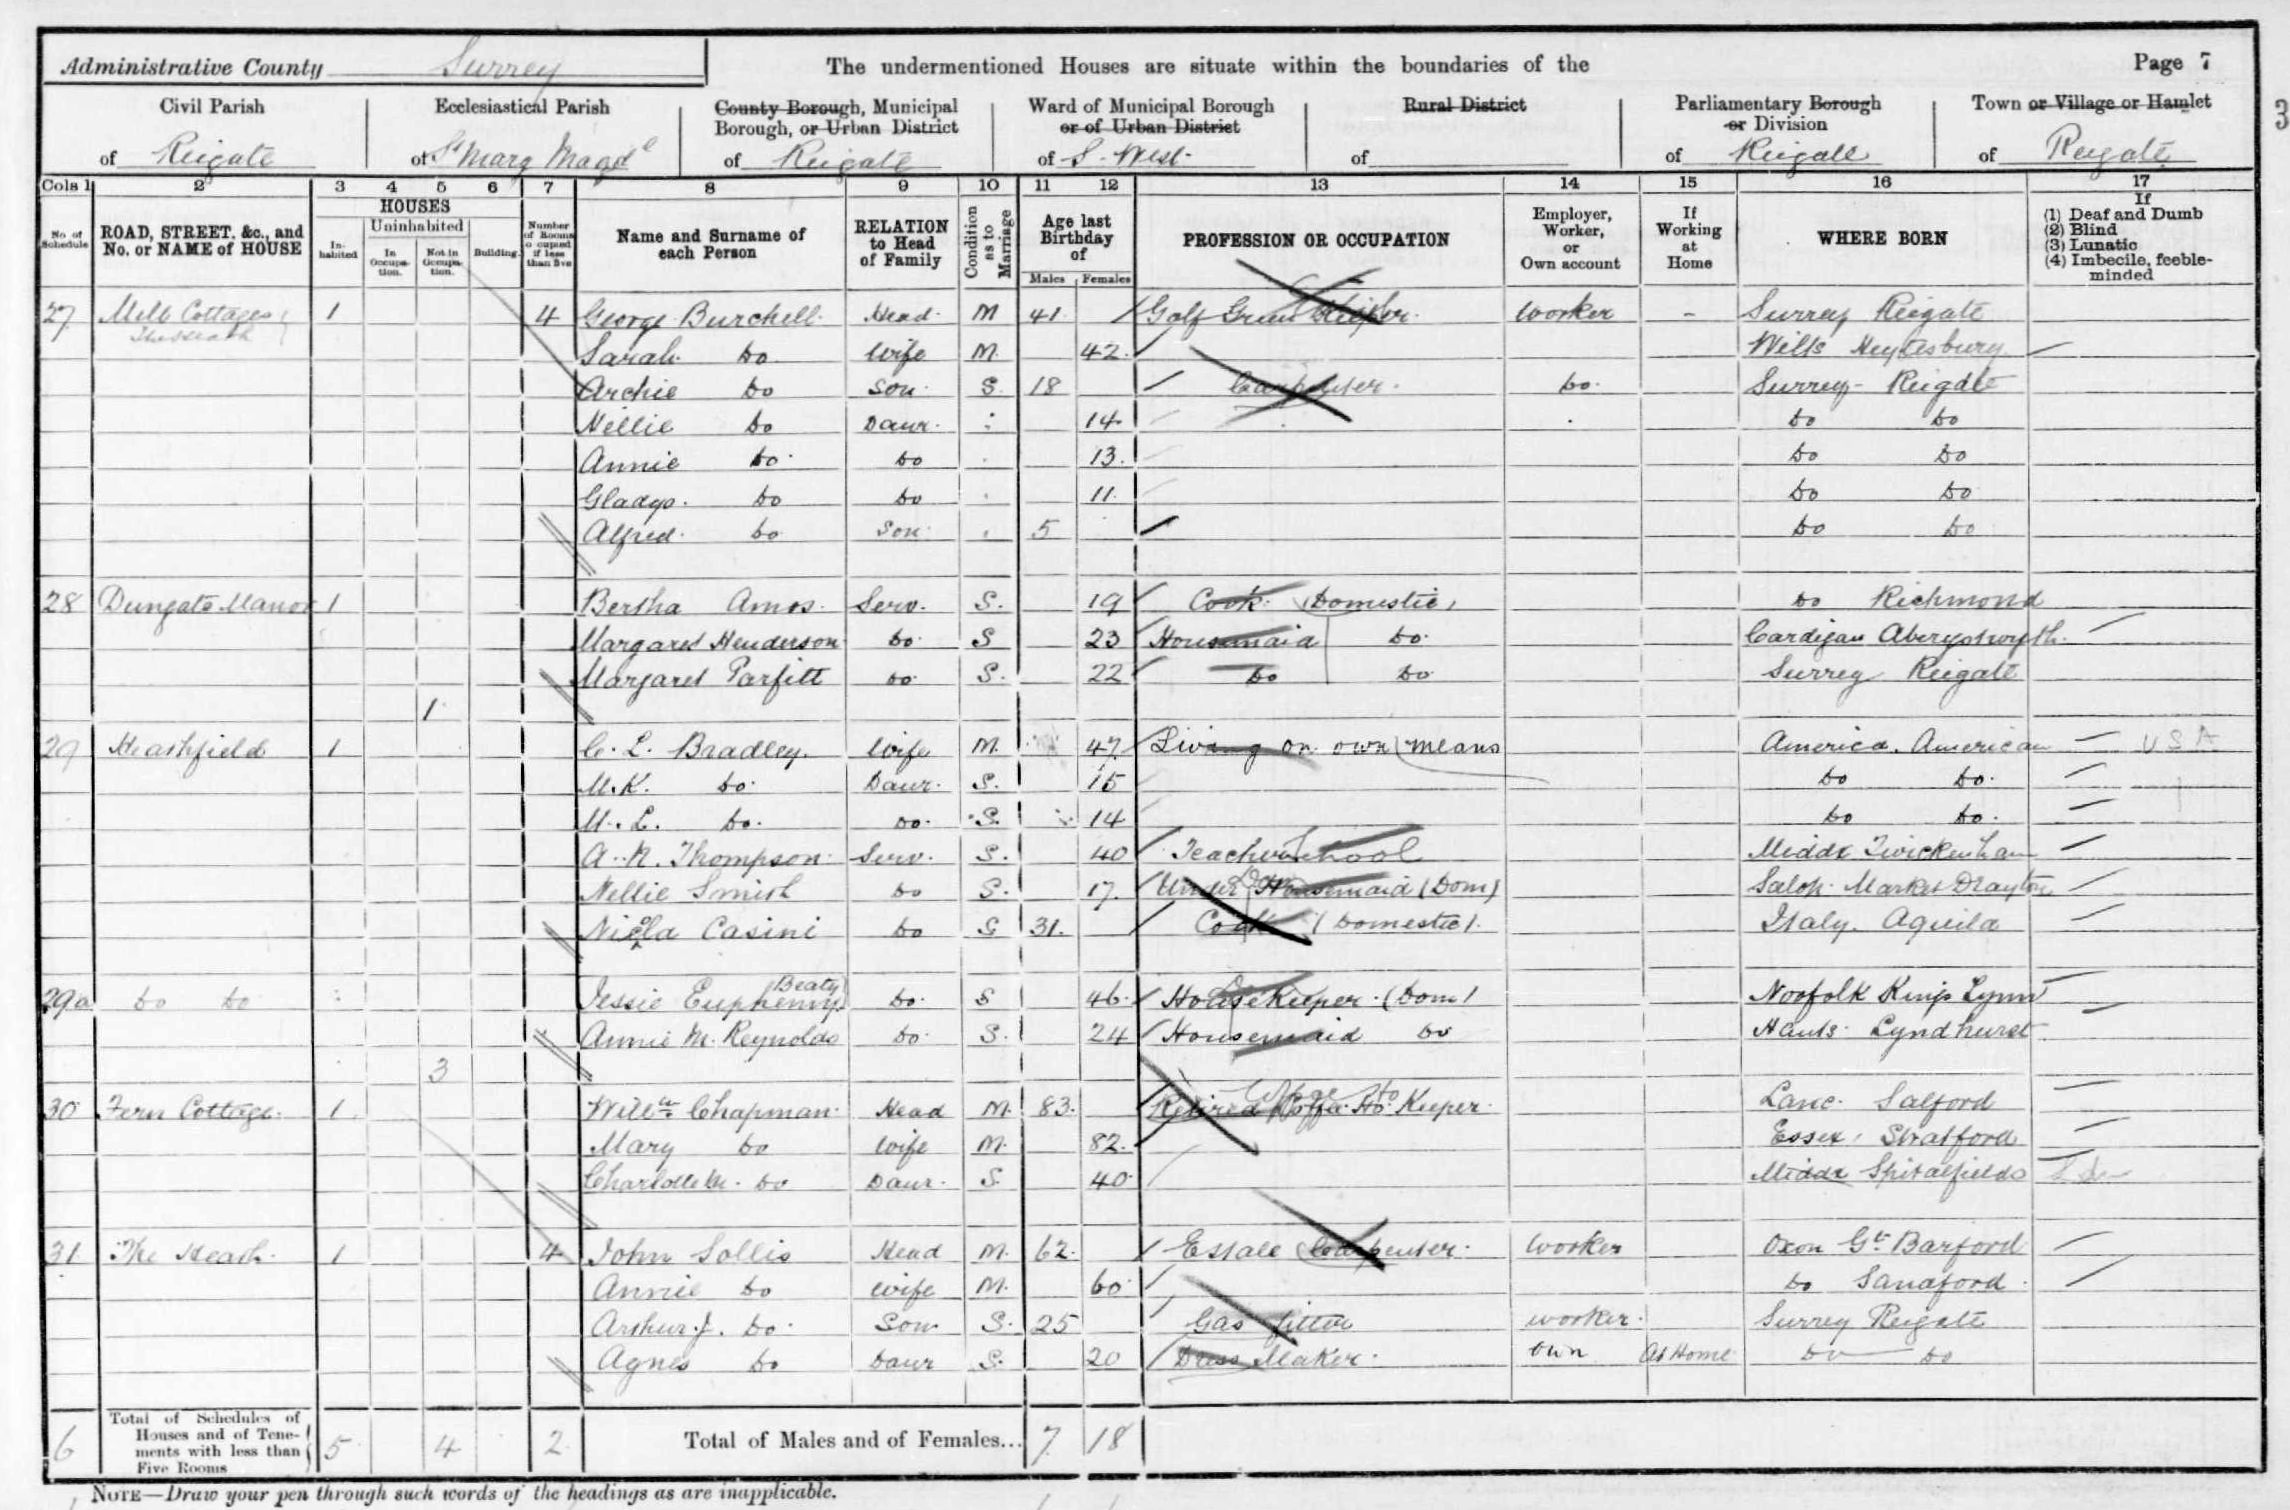 Administrative County Surrey
The undermentioned Houses are situate within the boundaries of the
Page 7
Civil Parish of Reigate
Ecclesiastical Parish of St Mary Magde
County Borough, Municipal Borough, or Urban District of Reigate
Ward of Municipal Borough or of Urban District of S. West
Rural District of
Parliamentary Borough or Division of Reigate
Town or Village or Hamlet of Reigate
3
Cols 1 2 3 4 5 6 7 8 9 10 11 12 13 14 15 16 17
No. of Schedule
ROAD, STREET, &c., and No. or NAME of HOUSE
HOUSES
Inhabited
Uninhabited
In Occupation.
Not in Occupation.
Building.
Number of Rooms occupied if less than five
Name and Surname of each Person
RELATION to Head of Family
Condition as to Marriage
Age last Birthday of
Males Females
PROFESSION OR OCCUPATION
Employer, Worker, or Own account
If Working at Home
WHERE BORN
If
(1) Deaf and Dumb
(2) Blind
(3) Lunatic
(4) Imbecile, feeble-minded
27 Mill Cottages 1 4 George Burchell Head M 41 Golf Green Keeper Worker - Surrey Reigate
Sarah Do Wife M 42 Wilts Heytesbury
Archie Do Son S 18 Carpenter Do Surrey Reigate
Nellie Do Daur 14 Do Do
Annie Do Do 13 Do Do
Gladys Do Do 11 Do Do
Alfred Do Son 5 Do Do
28 Dungate Manor 1 Bertha Amos Serv. S. 19 Cook (Domestic) Do Richmond
Margaret Henderson Do S 23 Housemaid Do Cardigan Aberystwyth
Margaret Parfitt Do S. 22 Do Do Surrey Reigate
1
29 Heathfield 1 C. L. Bradley Wife M. 47 Living on own means America. American USA
M.K. Do Daur. S. 15 Do Do
M. L. Do. Do. S. 14 Do Do.
A. N. Thompson Serv. S. 40 Teacher School Middx Twickenham
Nellie Smith Do S. 17 Under Housemaid (Dom) Salop. Market Drayton
Nicola Casini Do S 31. Cook (Domestic) Italy. Aquila
29a Do Do Jessie Euphemy Beaty Do. S 46 Housekeeper (Dom) Norfolk Kings Lynn
Annie M. Reynolds Do. S. 24 Housemaid Do Hants Lyndhurst
3
30 Fern Cottage 1 Willm Chapman Head M. 83 Retired Coffee Ho. Keeper Lanc. Salford
Mary Do Wife M. 82 Essex, Stratford
Charlotte M. Do Daur. S 40 Middx Spitalfields
31 The Heath 1 4 John Sollis Head M. 62 Estate Carpenter Worker Oxon Gt. Barford
Annie Do Wife M. 60 Do Sandford
Arthur J. Do Son S. 25 Gas fitter worker Surrey Reigate
Agnes Do Daur S. 20 Dress Maker own At Home Do Do
6 Total of Schedules of Houses and of Tenements with less than Five Rooms 5 4 2 Total of Males and of Females... 7 18
NOTE—Draw your pen through such words of the headings as are inapplicable.